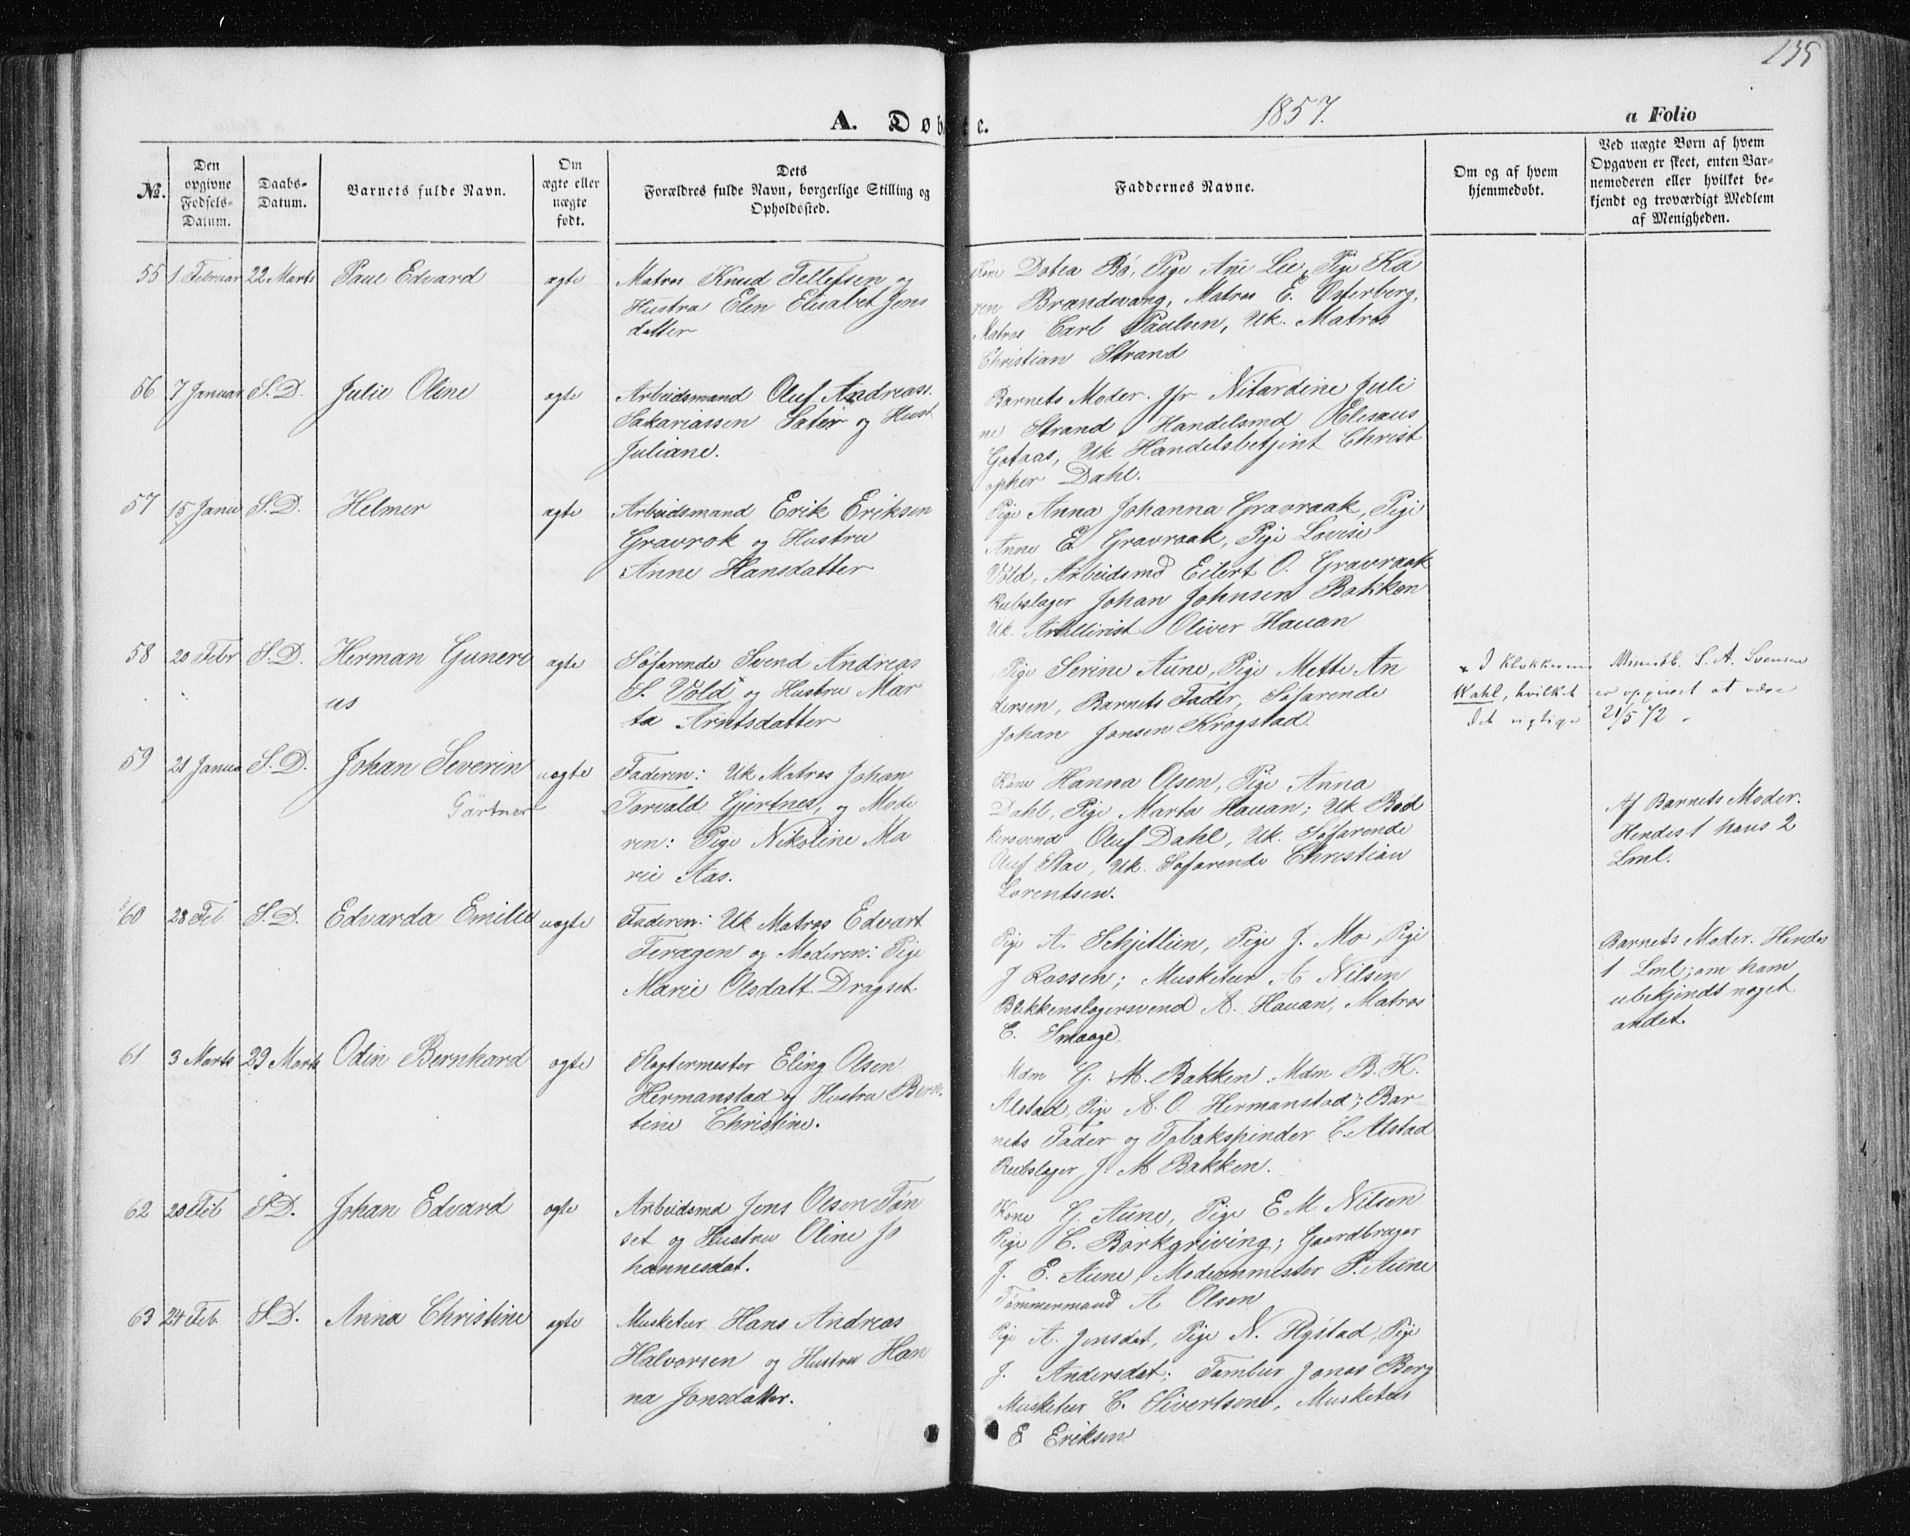 135
A. Døbte.
1857.
a Folio
№.
Den opgivne Fødsels-Datum.
Daabs-Datum.
Barnets fulde Navn.
Om ægte eller uægte født.
Dets Forældres fulde Navn, borgerlige Stilling og Opholdssted.
Faddernes Navne.
Om og af hvem hjemmedøbt.
Ved uægte Børn af hvem Opgaven er skeet, enten Barnemoderen eller hvilket bekjendt og troværdigt Medlem af Menigheden.
55 1 Februar 22 Marts Paul Edvard ægte
Matros Knud Tellefsen og
Hustru Elen Elisabet Jens
datter
Kone Dotea Bø, Pige Ane Lie, Pige Ka
ren Brændevang, Matros E. Østerberg,
Matros Carl Paulsen, Uk. Matros
Christian Strand
56 7 Januar S.D. Julie Oline ægte
Arbeidsmand Oluf Andreass.
Sakariassen Sæter og Hust
Juliane.
Barnets Moder. Jfr Nitardine Juli
ne Strand, Handelsmd Elisæus
Gotaas, Uk Handelsbetjent Christ
opher Dahl.
57 15 Janu S.D. Helmer ægte
Arbeidsmand Erik Eriksen
Gravrok og Hustru
Anne Hansdatter
Pige Anna Johanna Gravraak, Pige
Anne E. Gravraak, Pige Lovise
Vold, Arbeidsmd Eilert O. Gravraak
Rebslager Johan Johnsen Bakken
Uk. Artillirist Oliver Hauan
58 20 Febr S.D. Herman Guneri
us ægte
Søfarende Svend Andreas
S. Vold × og Hustru Mar
ta Arntsdatter
Pige Serine Aune, Pige Mette An
dersen, Barnets Fader, Søfarende
Johan Jansen Krogstad
× I Klokkerens Ministbl. S. A. Svensen
Wahl, hvilket er opgivet at være
det rigtige 21/5 72.
59 21 Janua S.D. Johan Severin
Gärtner uægte
Faderen: Uk Matros Johan
Torvald Gjertnes, og Mode
ren: Pige Nikoline Ma
rie Aas.
Kone Hanna Olsen, Pige Anna
Dahl, Pige Marta Hauan; Uk Bød
kersvend Oluf Dahl, Uk. Søfarende
Oluf Stav, Uk. Søfarende Christian
Lorentsen.
Af Barnets Moder.
Hendes 1 hans 2
Lml.
60 28 Feb S.D. Edvarda Emilie uægte
Faderen: Uk Matros Edvart
Feragen og Moderen: Pige
Marie Olsdatt. Dragset.
Pige A. Schjetlein, Pige J. Mo, Pige
J Rossen; Musketur A Nilsen
Blikkenslagersvend A. Hauan, Matros
C. Smaage.
Barnets Moder. Hendes
1 Lml; om ham
ubekjendt noget
andet.
61 3 Marts 29 Marts Odin Bernhard ægte
Slagtermester Eling Olsen
Hermanstad og Hustru Bern
tine Christine.
Mdm G. M. Bakken, Mdm B. K.
Alstad, Pige A. O. Hermanstad; Bar
nets Fader og Tobakspinder C. Alstad
Rebslager J. M Bakken.
62 20 Feb S.D. Johan Edvard ægte
Arbeidsmd Jens Olsen Tøn
set og Hustru Oline Jo
hannesdat.
Kone G. Aune, Pige E M Nilsen
Pige C. Borkgriving; Gaardbruger
J. E. Aune, P. Aune
Tømmermand A Olsen
63 24 Feb. S.D. Anna Christine ægte
Musketur Hans Andreas
Halvorsen og Hustru Han
na Jonsdatter.
Pige A. Jensdat, Pige N. Hystad, Pige
J. Andersdat; Tambur Jonas Berg
Musketur C. Sivertsen, Musketur
E Eriksen